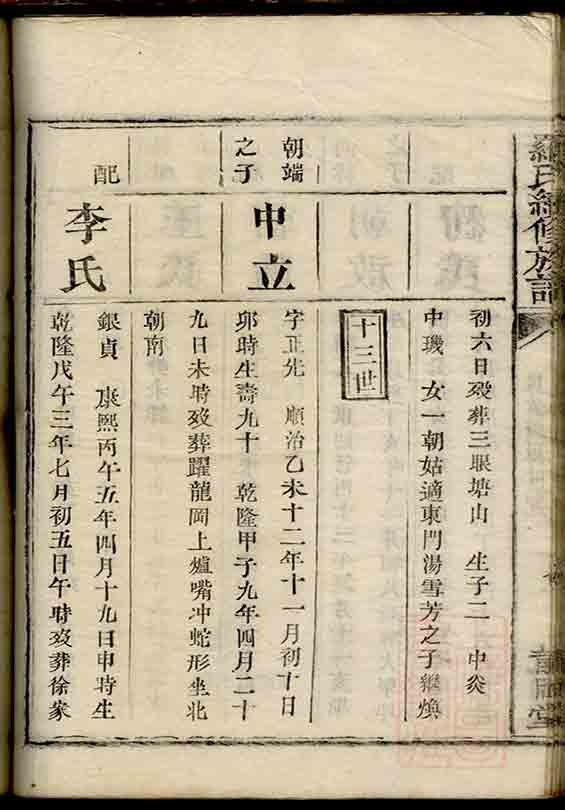 羅氏續修族譜
初六日歿葬三眼塘山　生子二　中炎
中璣　女一朝姑適東門湯雪芳之子繼煥
十三世
朝端
之子
中立
字正先　順治乙未十二年十一月初十日
卯時生壽九十　乾隆甲子九年四月二十
九日未時歿葬躍龍岡上爐嘴冲蛇形坐北
朝南
配
李氏
銀貞　康熙丙午五年四月十九日申時生
乾隆戊午三年七月初五日午時歿葬徐家